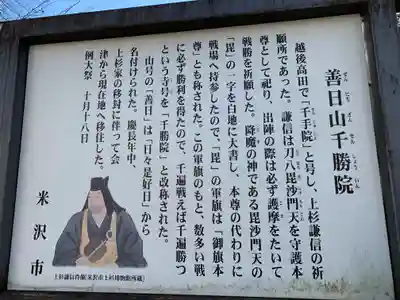 善日山千勝院
ぜん にち ざん せん しょう いん
越後高田で「千手院」と号し、上杉謙信の祈
願所であった。謙信は刀八毘沙門天を守護本
尊として祀り、出陣の際は必ず護摩をたいて
戦勝を祈願した。降魔の神である毘沙門天の
「毘」の一字を白地に大書し、本尊の代わりに
戦場へ持参したので、「毘」の軍旗は「御旗本
尊」とも称された。この軍旗のもと、数多い戦
に必ず勝利を得たので、千遍戦えば千遍勝つ
という寺号を「千勝院」と改称された。
山号の「善日」は「日々是好日」から
名付けられた。慶長年中、
上杉家の移封に伴って会
津から現在地へ移住した。
例大祭　十月十八日
米沢市
上杉謙信肖像(米沢市上杉博物館所蔵)